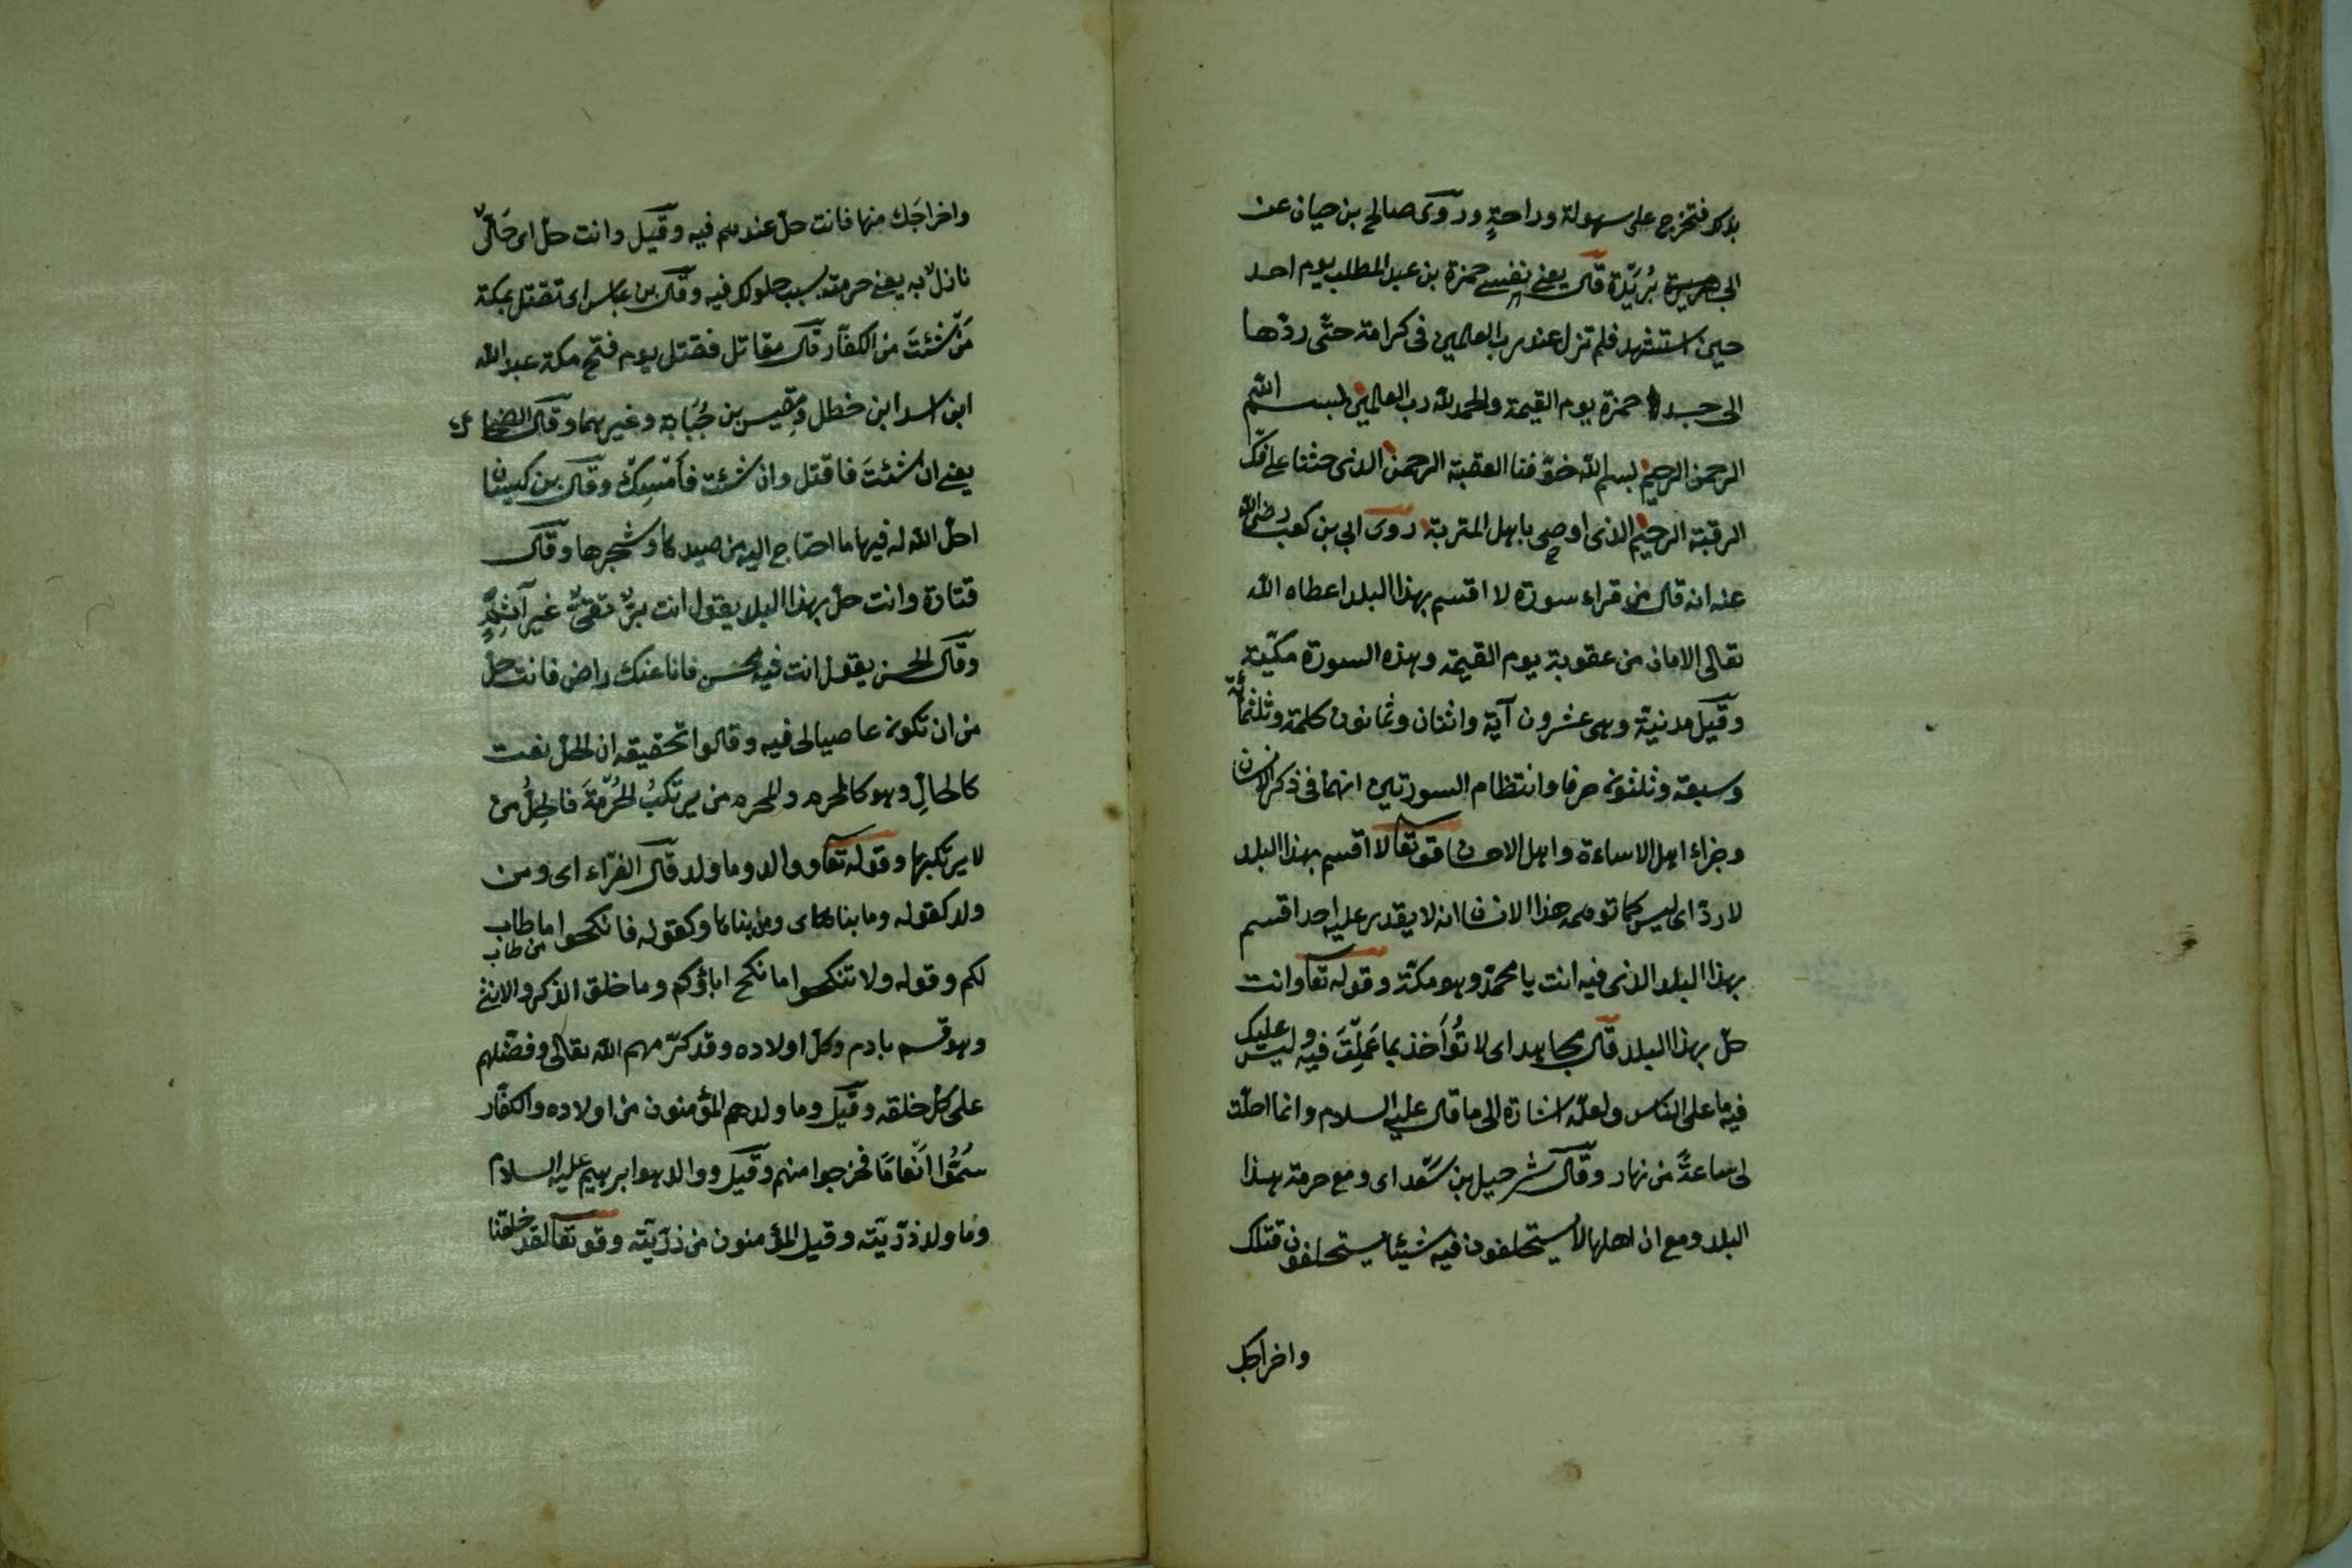 بلا كد فتخرج على سهولة وراحة وروى صالح بن حيان عن
ابي هريرة بُرَيْدة قال يعني نفس حمزة بن عبد المطلب يوم احد
حين استشهد فلم تزل عند رب العالمين في كرامة حتّى ردّها
الى جسد حمزة يوم القيمة والحمد لله رب العالمين بسم الله
الرحمن الرحيم بسم الله خوّفنا العقبة الرحمن الذى حثنا على فكّ
الرقبة الرحيم الذى اوصى باهل المتربة روى ابي بن كعب رضى الله
عنه انه قال من قراء سورة لا اقسم بهذا البلد اعطاه الله
تعالى الامان من عقوبة يوم القيمة وهذه السورة مكيّة
وقيل مدنية وهى عشرون آية واثنان وثمانون كلمة وثلثمائة
وسبعة وثلثون حرفا وانتظام السورتين انهما في ذكر الانسان
وجزاء اهل الاساءة واهل الاحسان قوله تعا لا اقسم بهذا البلد
لا ردّ اى ليس كما توهمه هذا الانسان انه لا يقدر عليه احد اقسم
بهذا البلد الذى فيه انت يا محمّد وهو مكّة وقوله تعا وانت
حلّ بهذا البلد قال مجاهد اى لا تُؤاَخذ بما عَمِلْتَ فيه وليس عليك
فيه ما على الناس ولعلّه اشارة الى ما قال عليه السلام وانما احلّت
لى ساعةً من نهار وقال شرحبيل بن سَعْد اى ومع حرمة هذا
البلد ومع ان اهلها لا يستحلفون فيه شيئا يستحلفون قتلك
واخراجك
واخراجَك منها فانت حلّ عندهم فيه وقيل وانت حلّ اى حَالٌّ
نازلٌ به يعنى حرمته بسبب حلولك فيه وقال بن عباس اى تقتل بمكة
مَنْ شئتَ من الكفّار قال مقاتل فقتل يوم فتح مكة عبد الله
ابن اسد ابن خطل ومِقْيس بن جُبَابة وغيرهما وقال الضحاك
يعنى ان شئتَ فاقتل وان شئت فأمْسِكْ وقال بن كيسان
احلّ الله له فيها ما احتاج اليه من صيدها وشجرها وقال
قتادة وانت حلّ بهذا البلد يقول انت برٌّ تقىٌّ غير آثِمٍ
وقال الحسن يقول انت فيه محسن فانا عنك راض فانت حلّ
من ان تكون عاصيا لى فيه وقالوا تحقيقه ان الحلّ نعت
كالحالِ وهو كالمحرم والمحرم من يرتكبُ الحُرْمَةَ فالحِلُّ من
لا يرتكبها وقوله تعا ووالد وما ولد قال الفرّاء اى ومن
ولد كقوله وما بناها اى ومن بناها وكقوله فانكحوا ما طاب
من طاب
لكم وقوله ولا تنكحوا ما نكح اباؤكم وما خلق الذكر والانثى
وهو قسم بادم وكلّ اولاده وقد كرّمهم الله تعالى وفضّلهم
على كلّ خلقه وقيل وما ولد هم المؤمنون من اولاده والكفّار
سُمُّوا اَنْعَامًا فخرجوا منهم وقيل ووالد هو ابرهيم عليه السلام
وما ولد ذرّيّته وقيل المؤمنون من ذرّيّته وقوله تعا لقد خلقنا